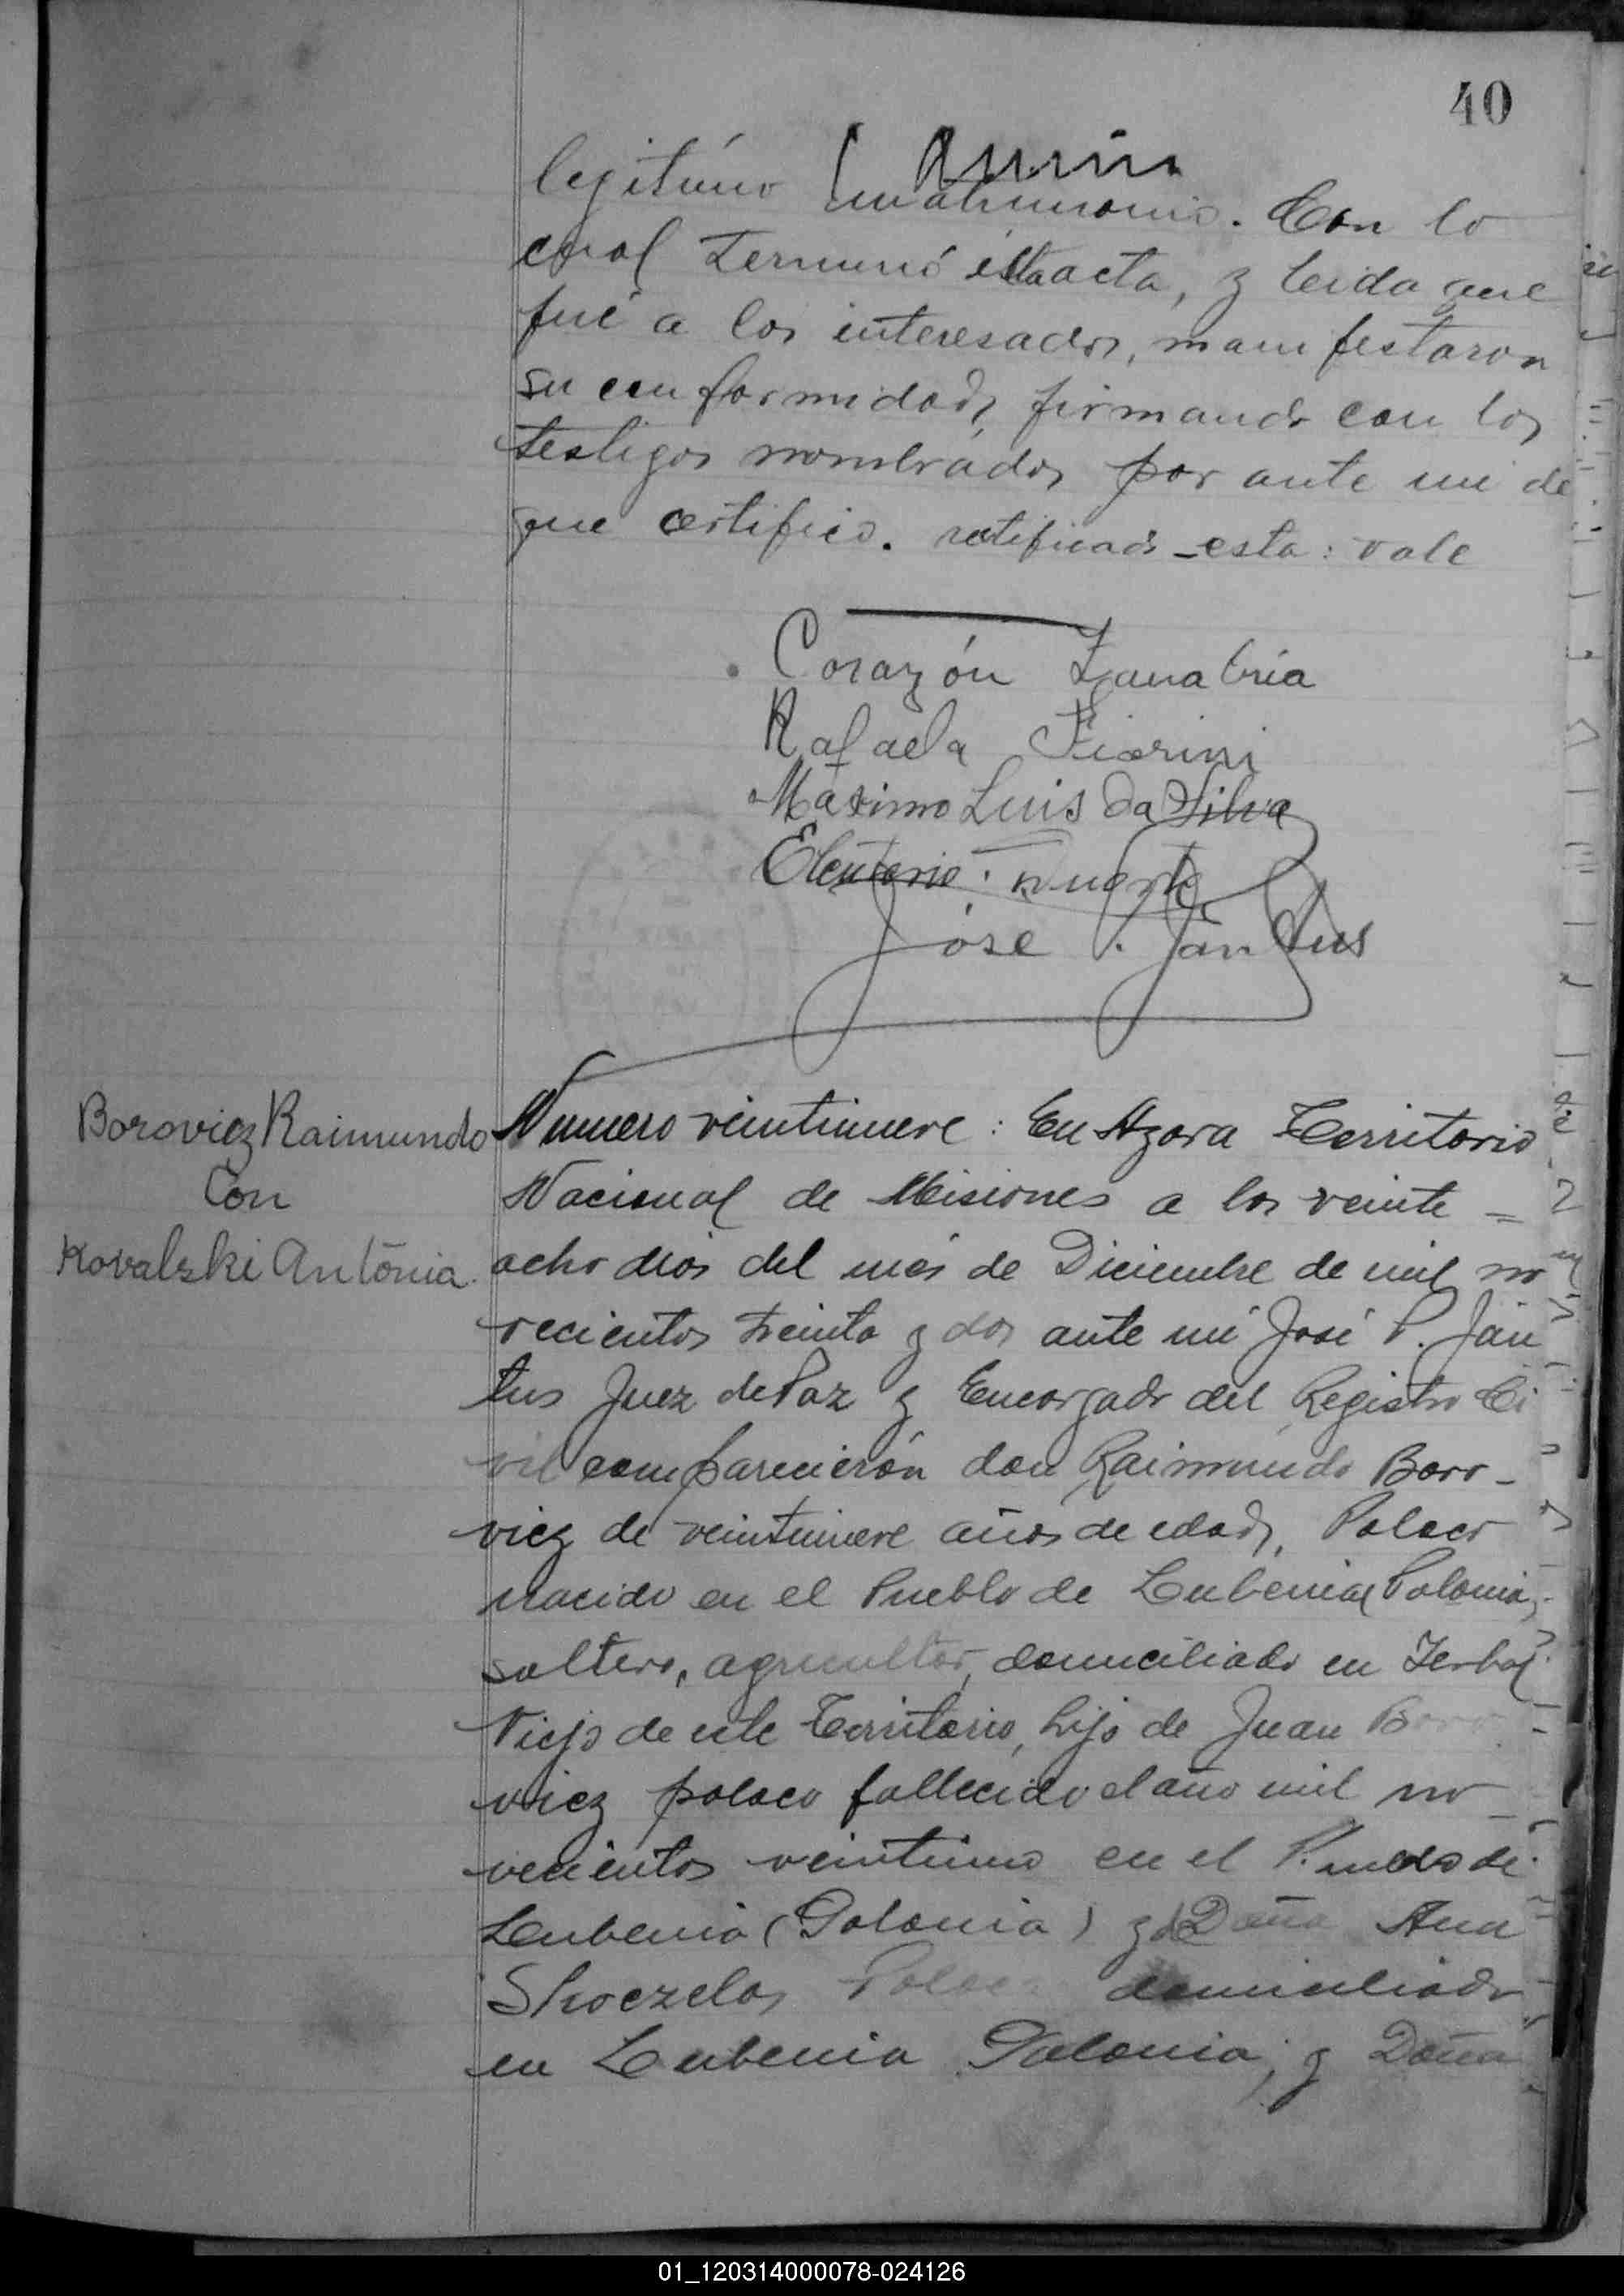 40
legitimo matrimonio. Con lo
cual terminó esta acta, y leida que
fué a los interesados, manifestaron
su conformidad, firmando con los
testigos nombrados por ante mi de
que certifico. ratificado - esta: vale
Corazón Zanabria
Rafaela Fiorini
Máximo Luis Da Silva
Eleuterio Duarte
José P. Jantus
Borovicz Raimundo
Con
Kovalski Antonia.
Numero veintinueve: En Azara Territorio
Nacional de Misiones a los veinte =
ocho dias del mes de Diciembre de mil no
vecientos treinta y dos ante mi José P. Jan
tus Juez de Paz y Encargado del Registro Ci
vil comparecierón don Raimundo Boro-
vicz de veintinueve años de edad, Polaco
nacido en el Pueblo de Lubenia (Polonia),
soltero, agricultor, domiciliado en Yerbal
Viejo de este Territorio, hijo de Juan Boro
vicz polaco fallecido el año mil no-
vecientos veintiuno en el Pueblo de
Lubenia (Polonia) y de Doña Ana
Skoczelas Polaca domiciliada
en Lubenia Polonia; y Doña
01_120314000078-024126